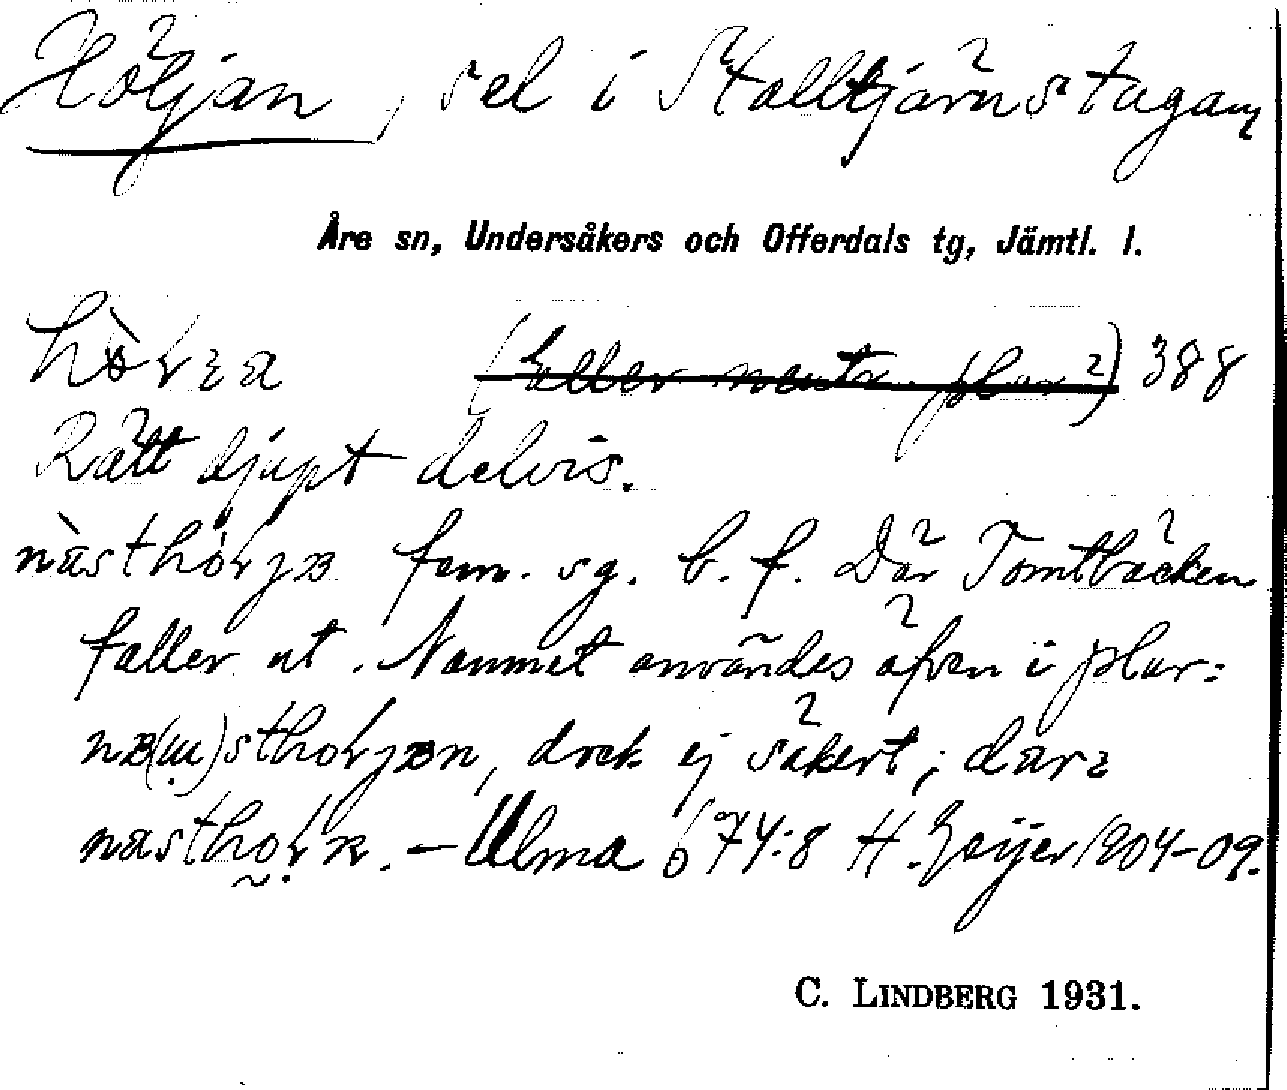 Höljan, sel i Stalltjärnstugan
Åre sn, Undersåkers och Offerdals tg, Jämtl. l.
(Eller neutr. plur?) 388
Rätt djupt delvis.
fem. sg. b. f. Där Tomtbäcken
faller ut. Namnet användes äfven i plur:
dock ej säkert; dar:
– Ulma 674:8 H. Geijer 1904-09.
C. LINDBERG 1931.